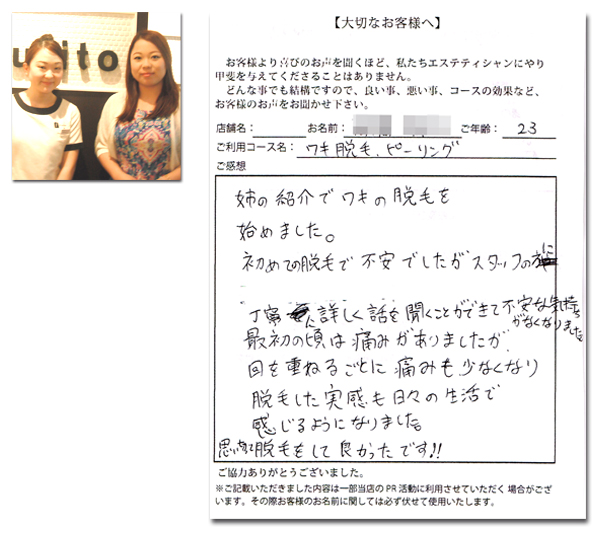 uito
【大切なお客様へ】
お客様より喜びのお声を聞くほど、私たちエステティシャンにやり
甲斐を与えてくださることはありません。
どんな事でも結構ですので、良い事、悪い事、コースの効果など、
お客様のお声をお聞かせ下さい。
店舗名: お名前: ご年齢: 23
ご利用コース名: ワキ脱毛、ピーリング
ご感想
姉の紹介でワキの脱毛を
始めました。
初めての脱毛で不安でしたがスタッフの
に
丁寧 詳しく話を聞くことができて不安な気持ち
がなくなりました。
最初の頃は痛みがありましたが
回を重ねるごとに痛みも少なくなり
脱毛した実感も日々の生活で
感じるようになりました。
思い切って脱毛をして良かったです!!
ご協力ありがとうございました。
※ご記載いただきました内容は一部当店のPR活動に利用させていただく場合がござ
います。その際お客様のお名前に関しては必ず伏せて使用いたします。